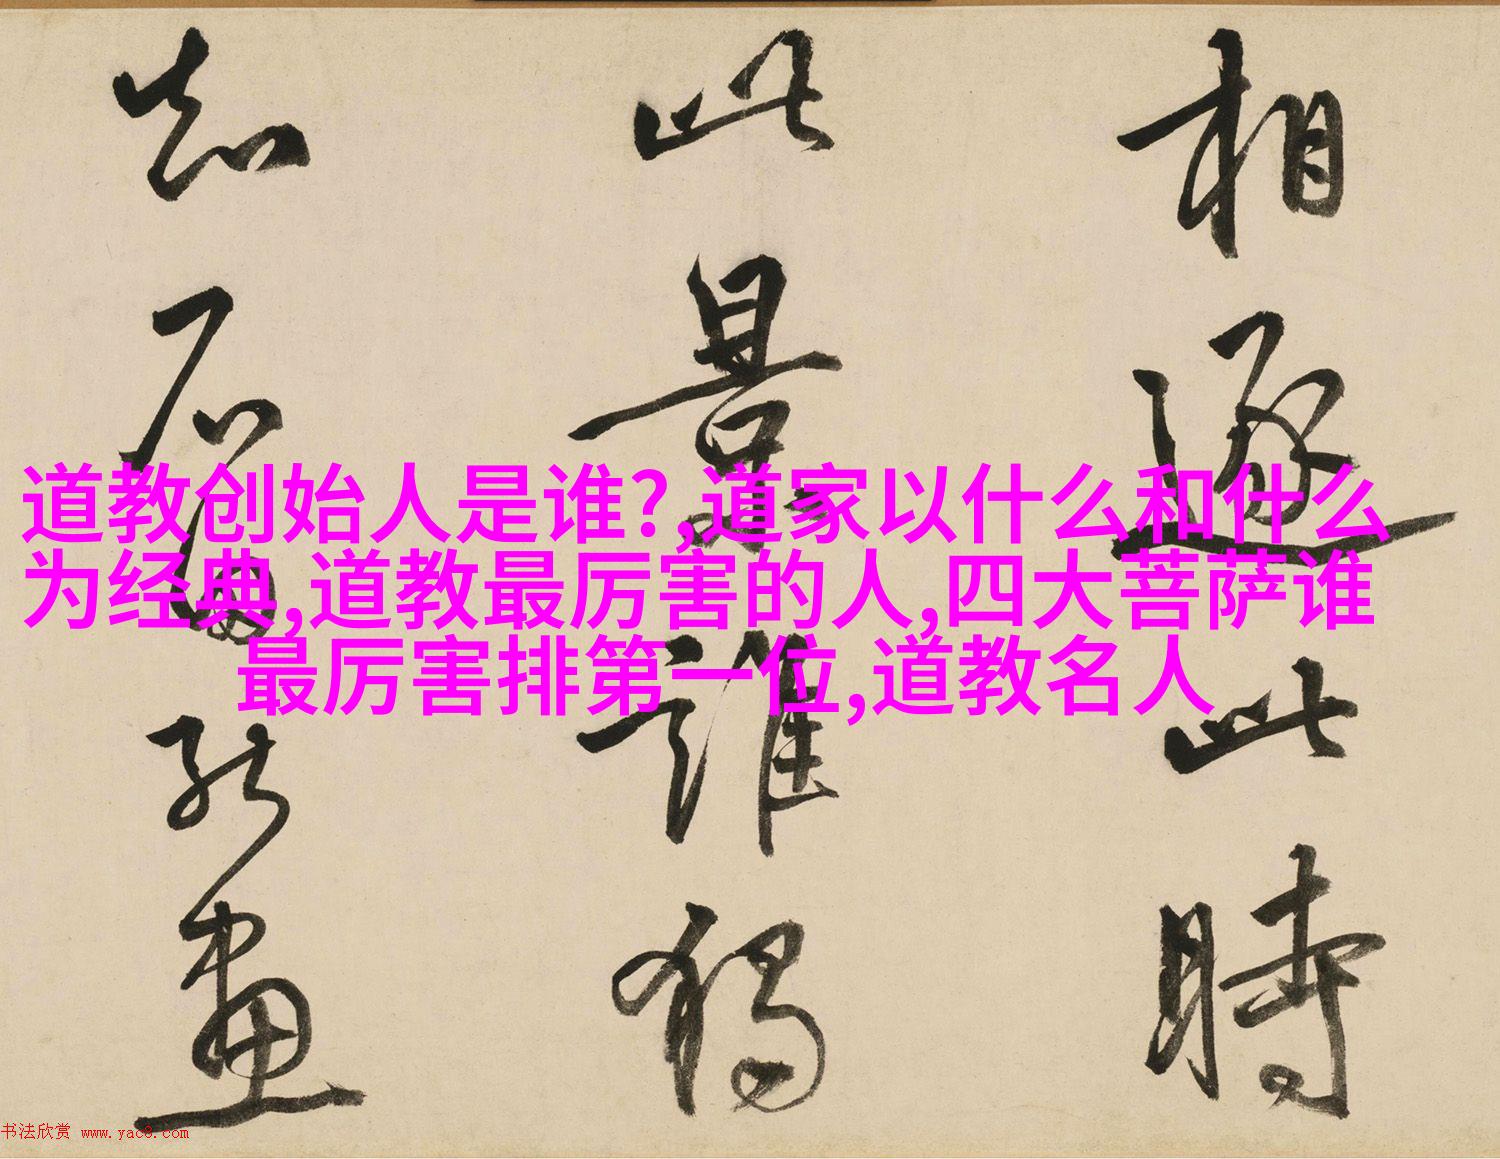 相逐此時
此景誰獨
知石能畫
道教创始人是谁?,道家以什么和什么
为经典,道教最厉害的人,四大菩萨谁
最厉害排第一位,道教名人
书法欣赏 www.yac8.com